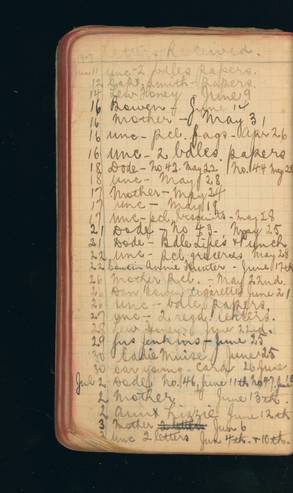 Letters Received.
11 unc - 2 bales papers.
12 Capt Smith - Papers.
14 Lew Honey - June 9
16 Bowen - June 14
16 Mother - May 31
16 unc - pcl. fags - Apr 26
16 unc - 2 bales papers
18 Dode - No 42. May 22 No. 44 May 28
18 unc - May 28
17 Mother - May 24
17 unc - May 19
17 unc - pcl. biscuits - May 28
21 Dode - No 43 - May 25
21 Dode - Bdle Lipes & Punch
22 unc - pcl groceries May 28
22 cousin Annie Hunter - June 17th
26 Mother pcl. - May 22nd
26 cigarettes June 21
26 unc - bale papers
27 unc - 2 regd letters.
28 Lew Honey June 22nd.
29 Gus Jenkins - June 25
30 Sadie Muise June 25
30 card 26 June
Jul 2 Dode No. 46, June 11th No 47 June 15
2 Mother June 13th.
2 Aunt Lizzie June 12th
3 Mother 2 letters Jun 6
3 unc 2 letters Jun 4th. & 10th.